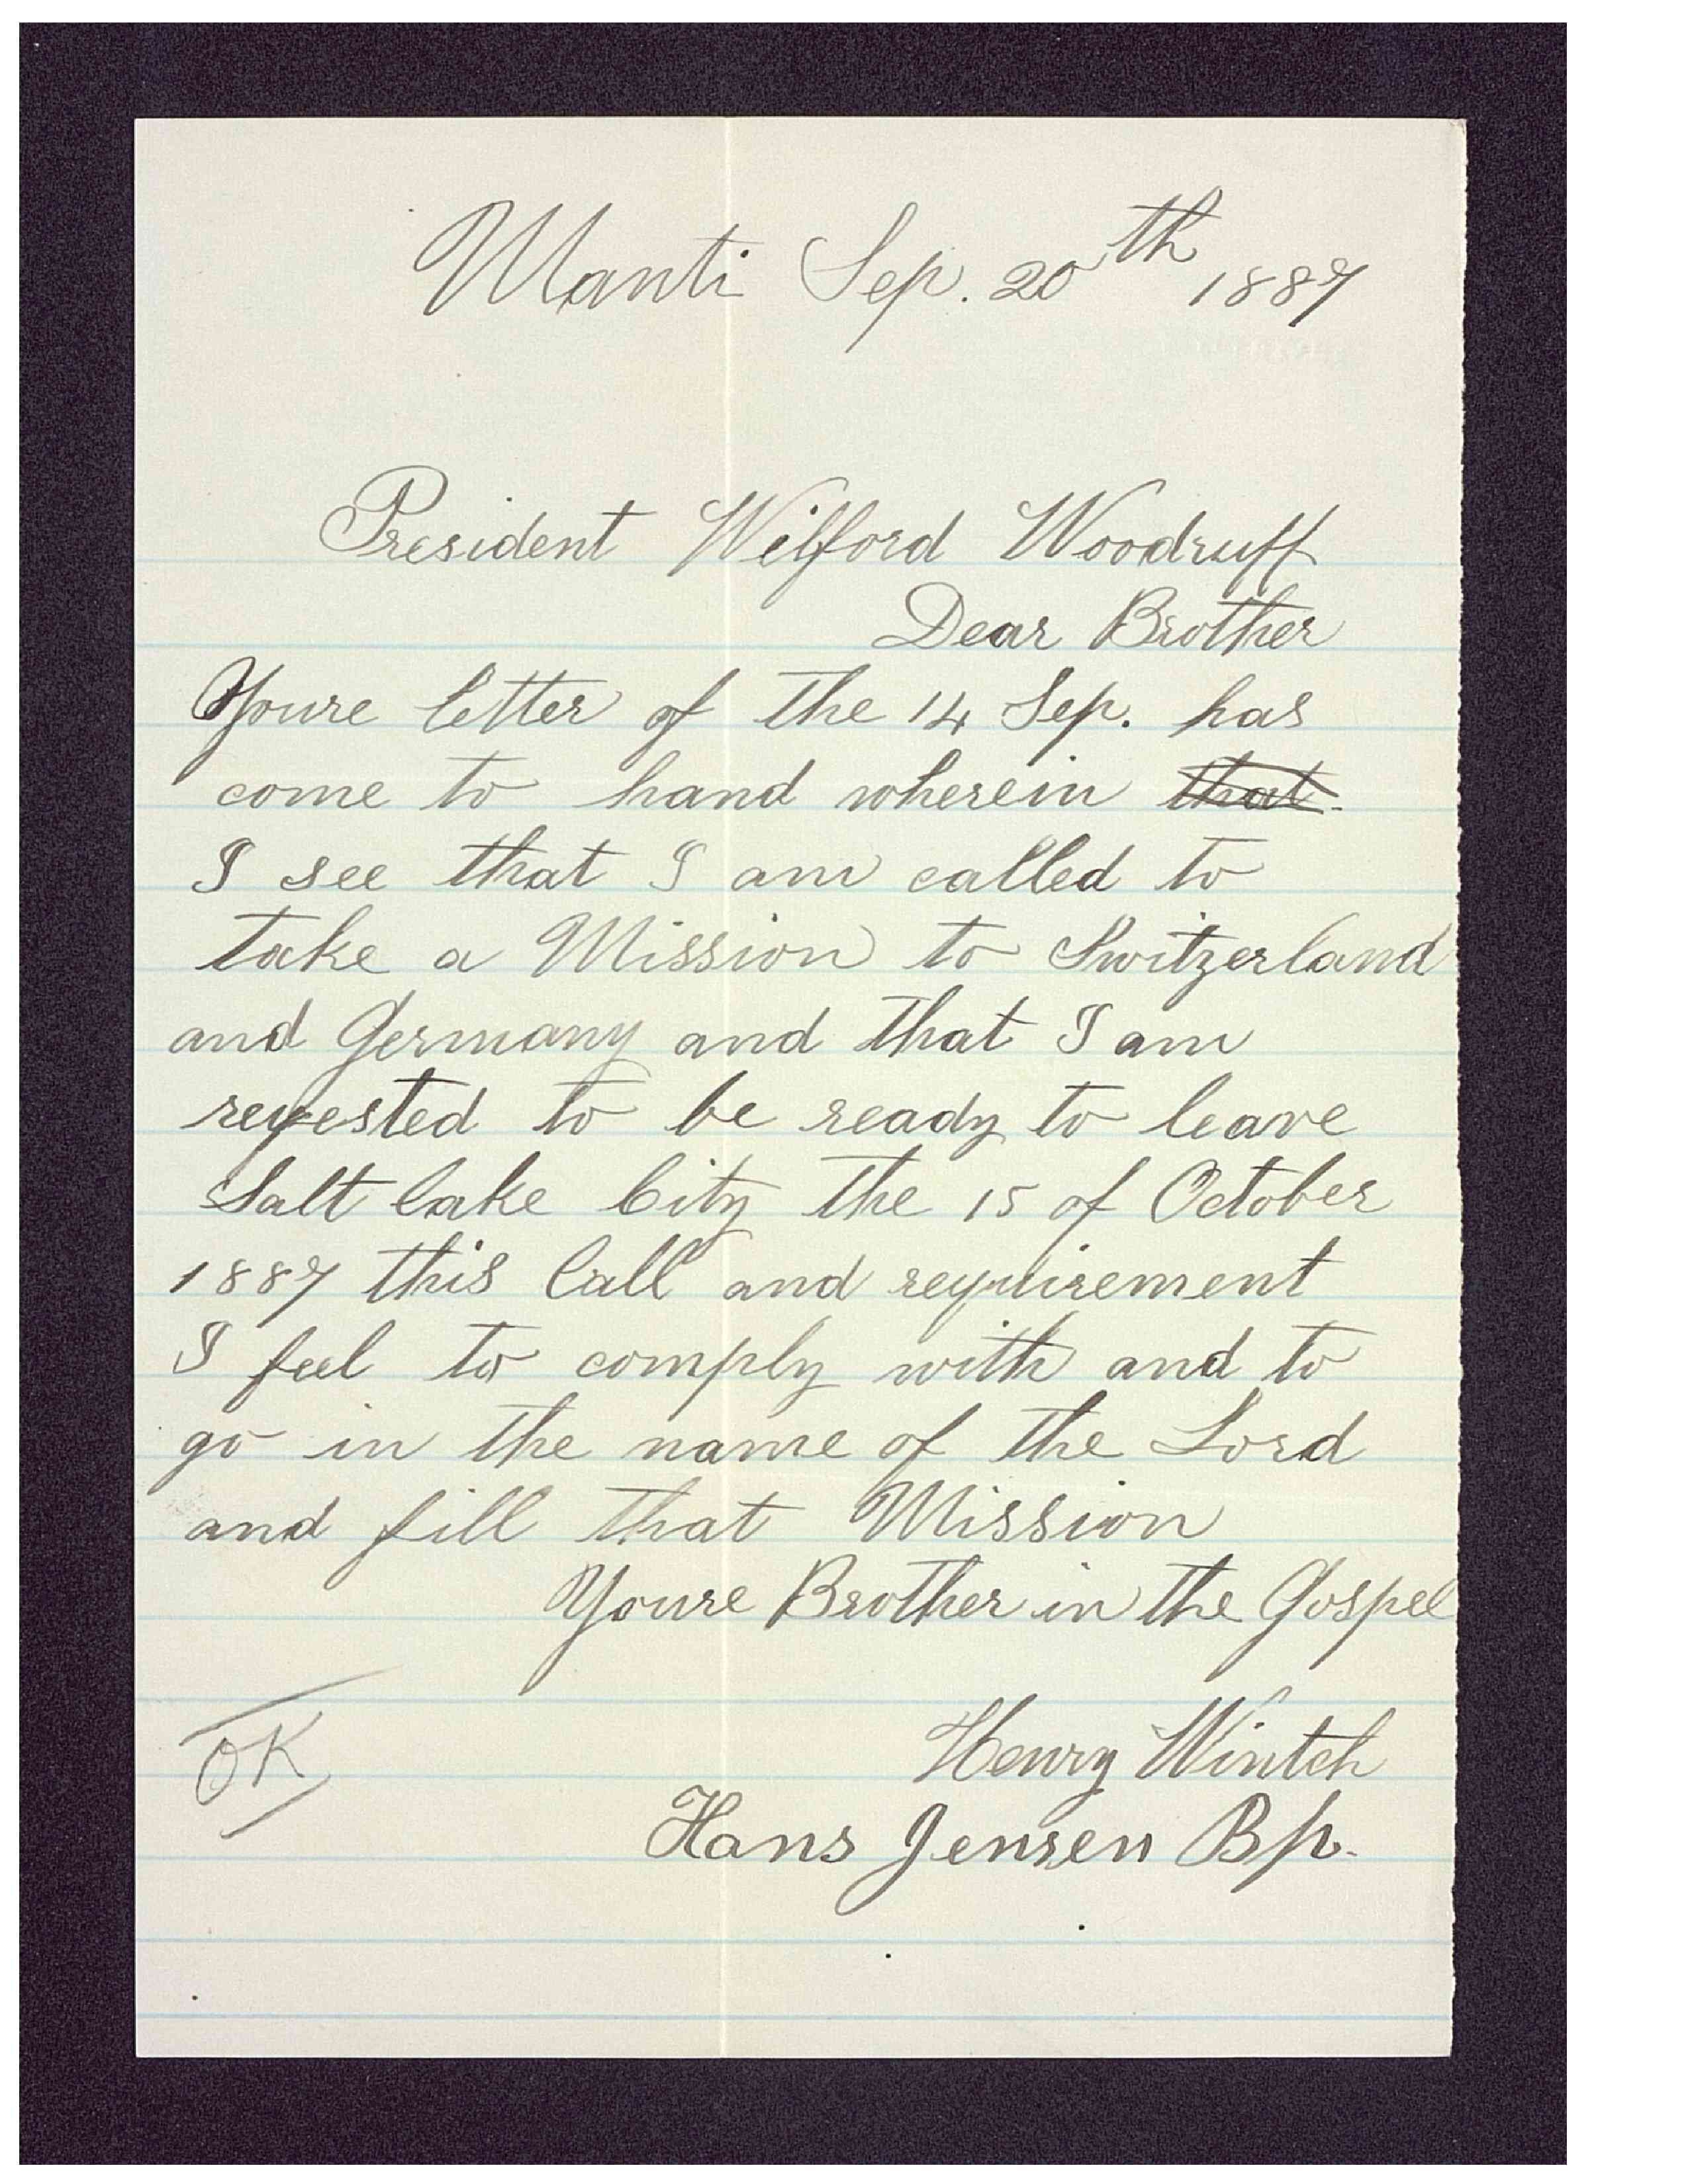 Manti Sep. 20th 1887
President Wilford Woodruff
Dear Brother
Youre letter of the 14 Sep. has
come to hand wherein that
I see that I am called to
take a Mission to Switzerland
and Germany and that I am
reqested to be ready to leave
Salt lake City the 15 of October
1887 this Call and requirement
I feel to comply with and to
go in the name of the Lord
and fill that Mission
Youre Brother in the Gospel
Henry Wintch
Hans Jensen Bp.
OK